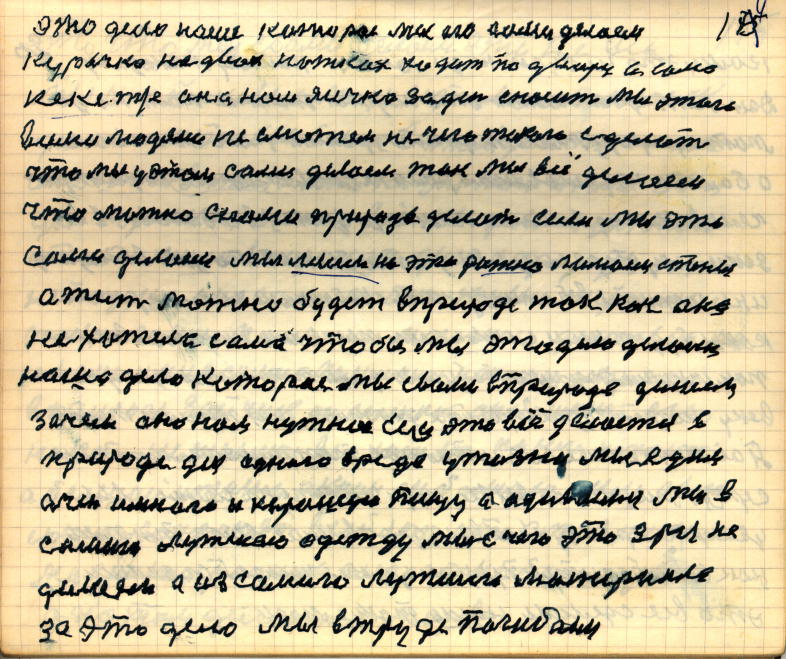 это дело наше которое мы его сами делаем 18
курочка на двох ножках ходит по двару а сама
кекетре она нам яичко заден сносит мы этаго
вими людями не сможем не чего такога сделать
что мы у этом сами делаем так мы всё делаем
что можно с нами природа делат сили мы это
сами делаем мы лишь на это ражно ломаем стены
а жит можно будет в природе так как она
не хотела сама чтобы мы это дело делали
наше дело которое мы свали в природе делаем
зачем оно нам нужное если это всё делается в
природе для одного вреде у жизни мы едим
очен много и хорошую пищу а одиваим мы в
самию лутшаю одежду мы с чего это зря не
делаем а из самого лутшего материяла
за это дело мы в труде погибали